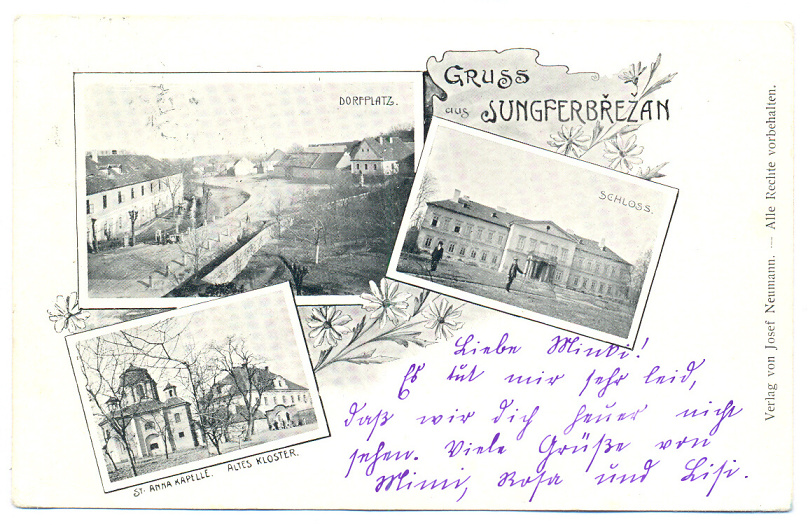 DORFPLATZ.
GRUSS
aus JUNGFERBŘEŽAN
SCHLOSS.
ST. ANNA KAPELLE. ALTES KLOSTER.
Liebe Minki!
Es tut mir sehr leid,
daß wir dich heuer nicht
sehen. Viele Grüße von
Mimi, Rosa und Lisi.
Verlag von Josef Neumann. — Alle Rechte vorbehalten.